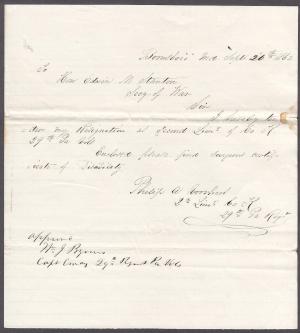 Boonsboro Md Sept 26th 1862
To
Hon Edwin M Stanton
Secy of War
Sir
I hereby ten
der my Resignation as Second Lieut of Co K
29th Pa Vols
Enclosed please find surgeons certifi
cate of Disability
Philip A
2d Lieut Co K
29th Pa Regt
Approved
Wm J Byrnes
Capt Comdg 29th Regmt Pa Vols